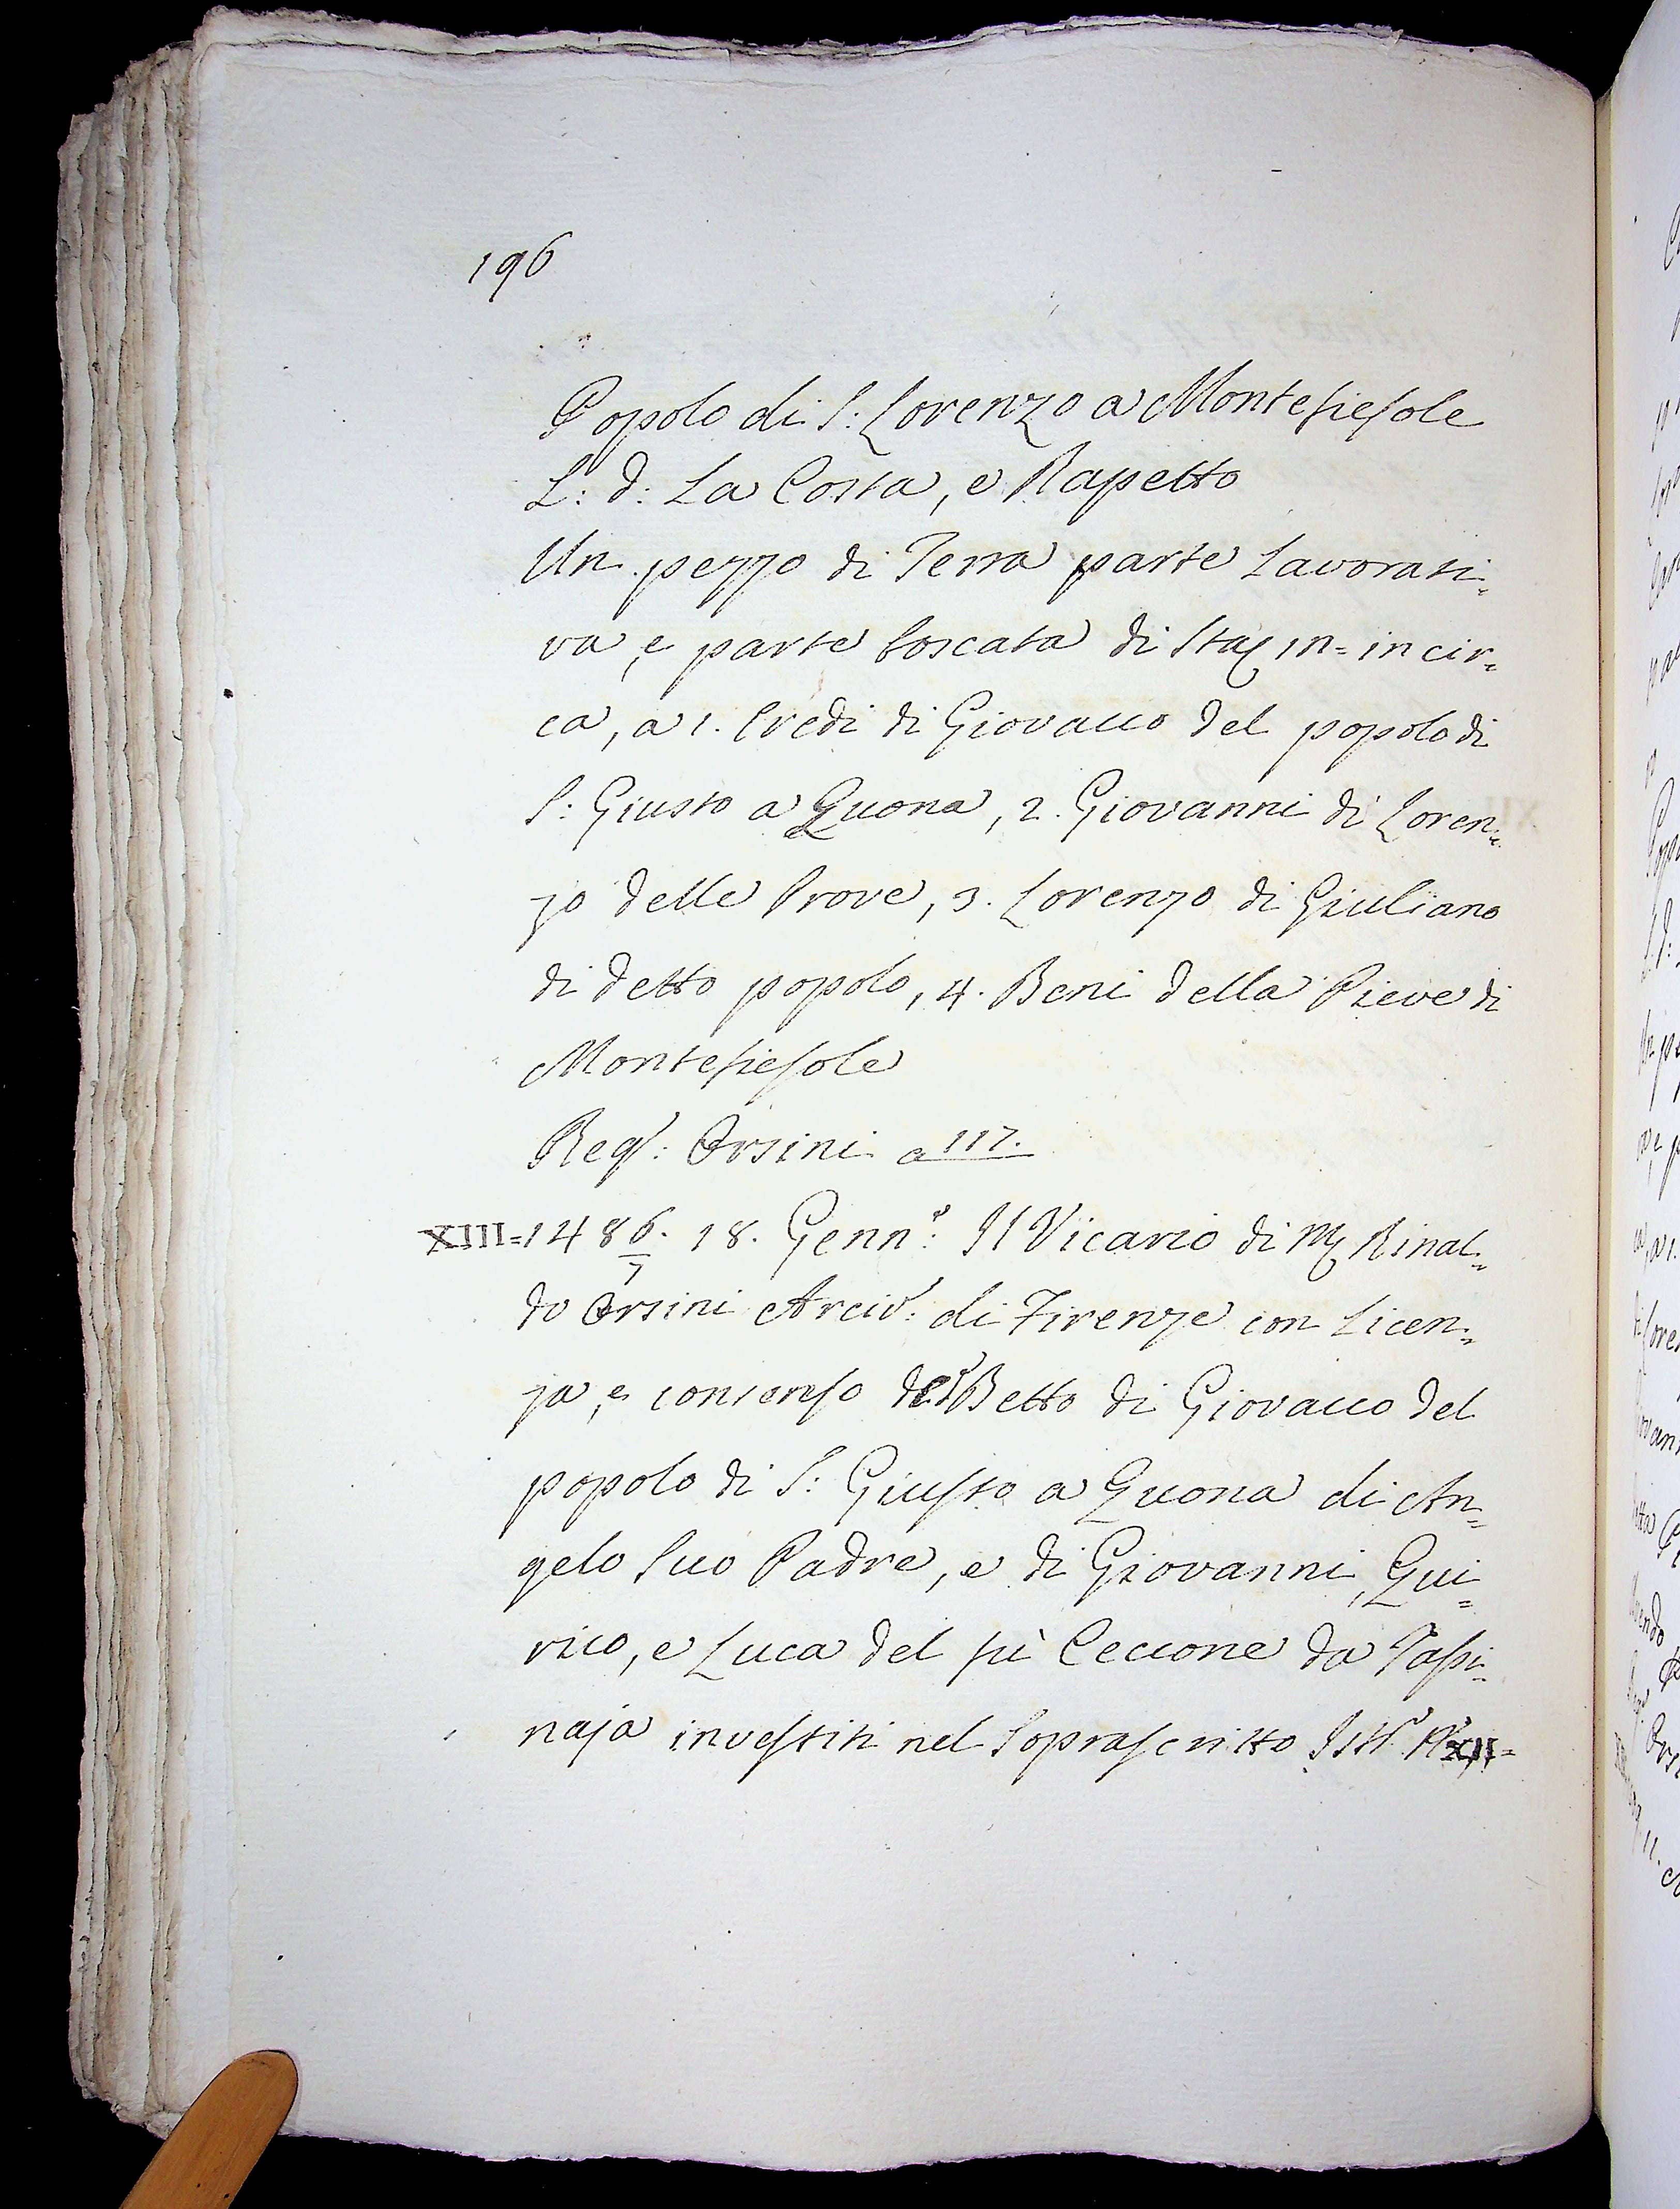 196
Popolo di S: Lorenzo a Montefiesole
L: d: La Costa, e Rapetto
Un pezzo di Terra parte Lavorati=
va, e parte boscata di Sta in= in cir=
ca, a 1. Eredi di Giovacco del popolo di
S: Giusto a Quona, 2. Giovanni di Loren=
zo delle Prove, 3. Lorenzo di Giuliano
di detto popolo, 4. Beni della Pieve di
Montefiesole
Regº: Orsini a 117.
XIII=1486/7. 18. Gennº: Il Vicario di M Rinal=
do Orsini Arcivº: di Firenze con Licen=
za, e consenso di Betto di Giovacco del
popolo di S: Giusto a Quona di An=
gelo suo Padre, e di Giovanni, Qui=
rico, e Luca del fù Ceccone da Tassi=
naja investiti nel soprascritto Istº Nº XII=